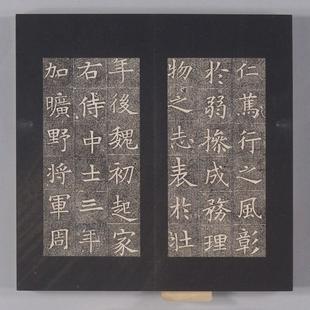 仁篤行之風彰
於弱操成務理
物之志表於壯
年後魏初起家
右侍中士三年
加曠野將軍周